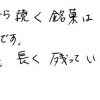 から続く銘菓は
です。
長く残ってい